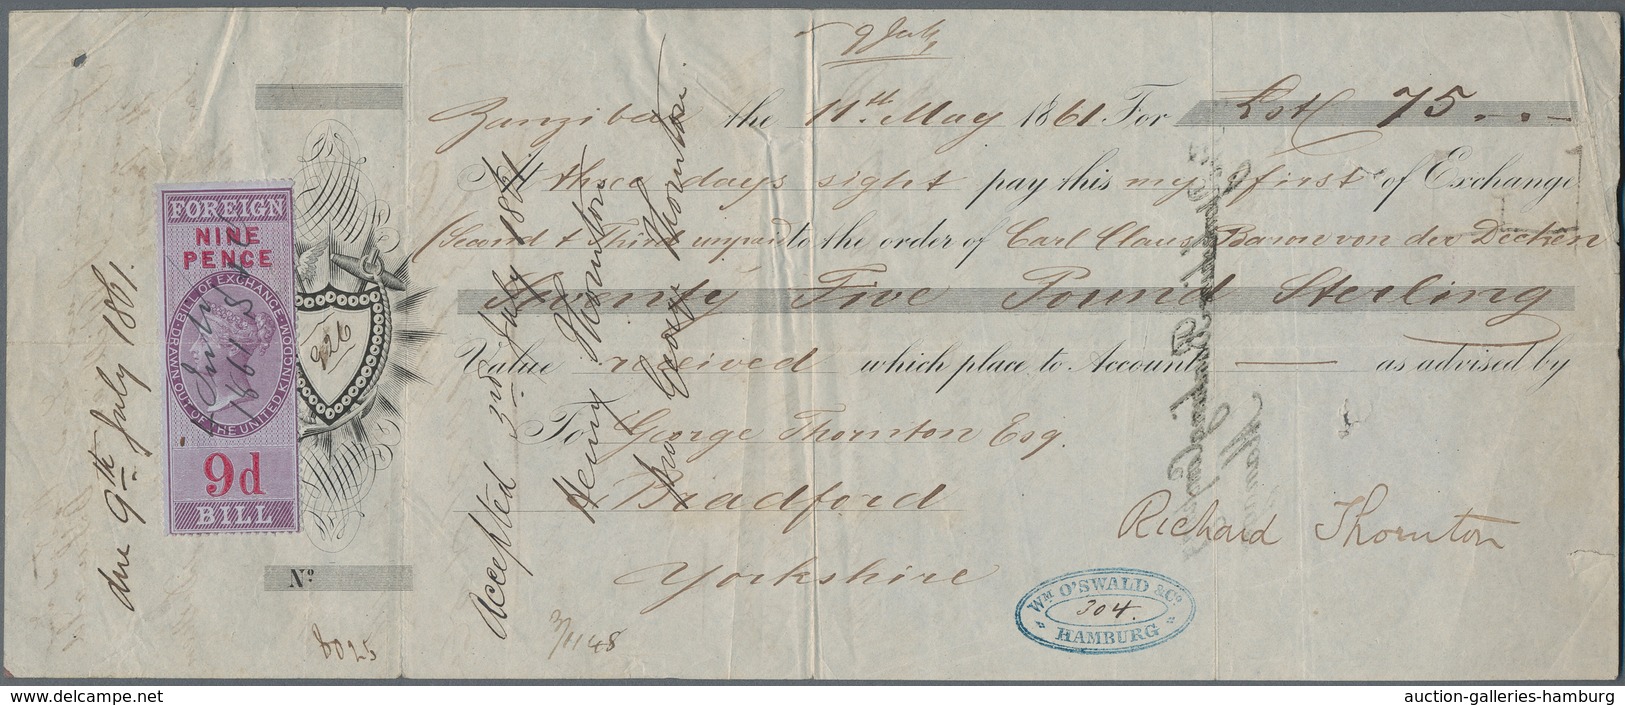 9 July
Zanzibar the 11th May 1861 For Lstl 75
At three days sight pay this my first of Exchange
(Second & Third unpaid to the order of Carl Claus Baron von der Decken
Seventy Five Pound Sterling
Value received which place to Account as advised by
To George Thornton Esq.
Bradford
Yorkshire
Richard Thornton
WM O'SWALD & Co.
304.
HAMBURG
Accepted 3rd July 1861
Henry Thornton
pro George Thornton
due 9th July 1861.
FOREIGN
NINE
PENCE
BILL OF EXCHANGE
DRAWN OUT OF THE UNITED KINGDOM
9d
BILL
226
No.
8025
3/1148
delcampe.net
auction-galleries-hamburg